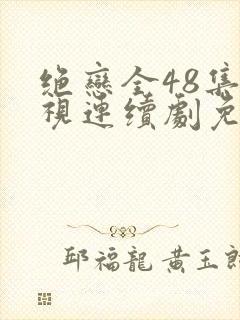 絕戀全48集
視連續劇免
邱福龍 黃玉郎